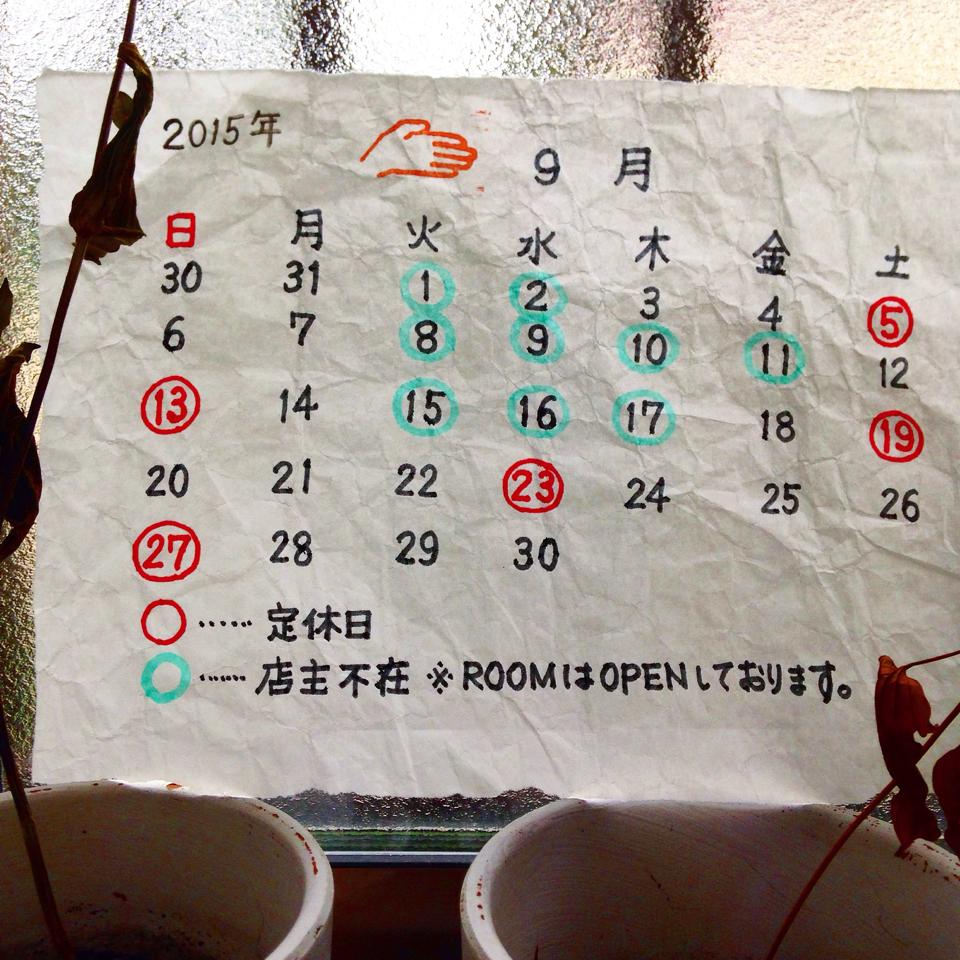 2015年 9月
日 月 火 水 木 金 土
30 31 1 2 3 4 5
6 7 8 9 10 11 12
13 14 15 16 17 18 19
20 21 22 23 24 25 26
27 28 29 30
○……定休日
○……店主不在 ※ROOMはOPENしております。